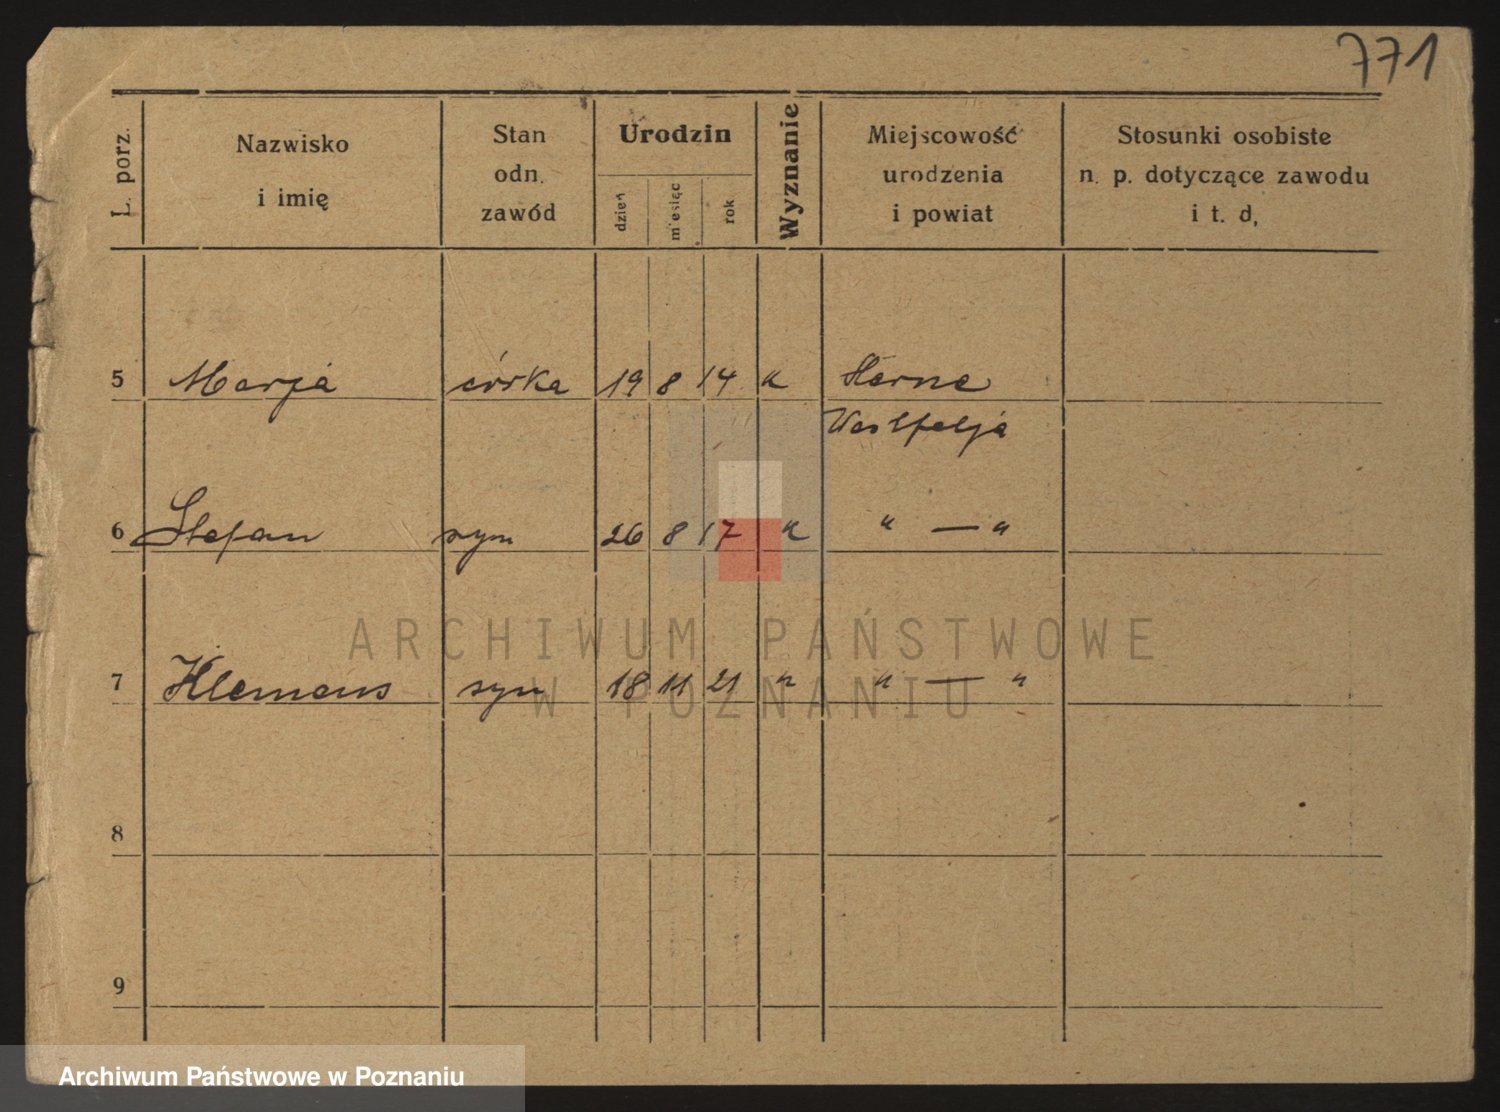 771
L. porz.
Nazwisko
i imię
Stan
odn.
zawód
Urodzin
dzień
miesiąc
rok
Wyznanie
Miejscowość
urodzenia
i powiat
Stosunki osobiste
n. p. dotyczące zawodu
i t. d,
5 Marja córka 19 8 14 " Herne
Westfalja
6 Stefan syn 26 8 17 " " — "
ARCHIWUM PAŃSTWOWE
W POZNANIU
7 Klemens syn 18 11 21 " " — "
8
9
Archiwum Państwowe w Poznaniu